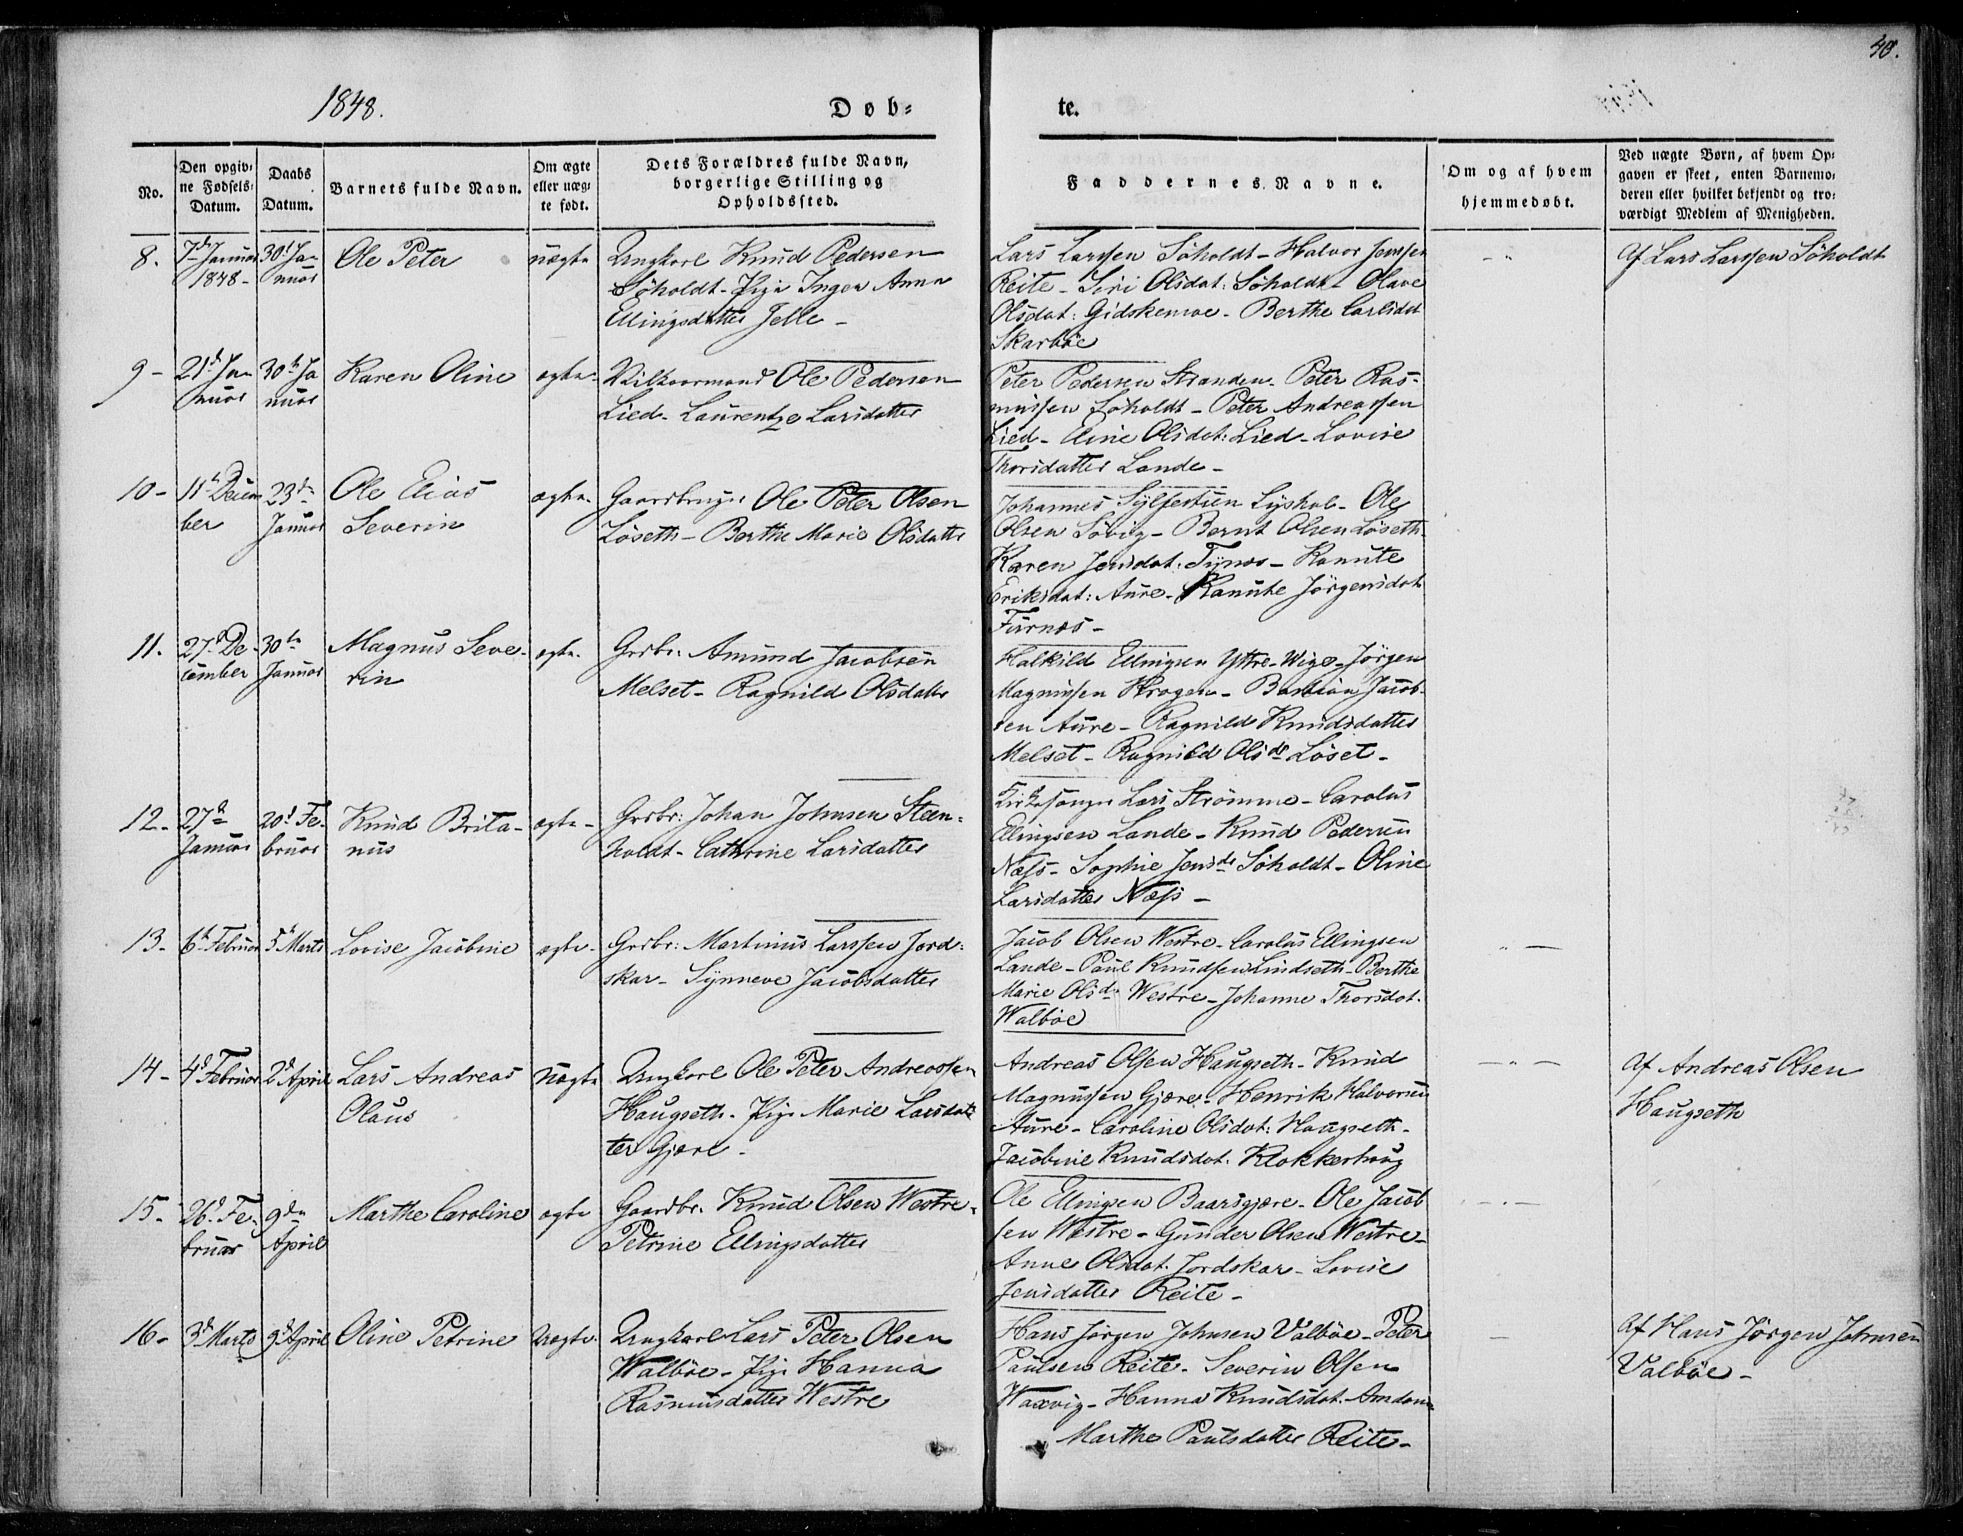 40.
1848.
Døb=
te.
No.
Den opgiv=
ne Fødsels=
Datum.
Daabs
Datum.
Barnets fulde Navn.
Om ægte
eller uæg=
te født.
Dets Forældres fulde Navn,
borgerlige Stilling og
Opholdssted.
Faddernes Navne.
Om og af hvem
hjemmedøbt.
Ved uægte Børn, af hvem Op=
gaven er skeet, enten Barnemo=
deren eller hvilket bekjendt og tro=
værdigt Medlem af Menigheden.
8.
7de Januar
1848-
30te Ja-
nuar
Ole Peter
uægte
Ungkarl Knud Pedersen
Söholdt- Pige Inger Anna
Ellingsdatter Jelle-
Lars Larssen Söholdt- Halvor Jenssen
Reite- Siri Olsdat: Söholdt- Olave
Olsdat: Gidskemoe- Berthe Carlsdat
Skarböe
Af Lars Larssen Söholdt
9-
21de Ja-
nuar
30te Ja
nuar
Karen Oline
ægte-
Vilkaarmand Ole Pedersen
Lied- Laurentze Larsdatter
Peter Pedersen Stranden- Peter Ras-
mussen Söholdt- Peter Andreassen
Lied- Eline Olsdat: Lied- Lovise
Thorsdatter Lande-
10-
11te Decem
ber
23de
Januar
Ole Elias
Severin
ægte-
Gaardbruger Ole Peter Olsen
Löseth- Berthe Marie Olsdatter
Johannes Sylfestsen Lyshol- Ole
Olsen Sövig- Bernt Olsen Löseth-
Karen Jensdat: Tynes- Kanute
Eriksdat: Aure- Kanute Jörgensdat
Furnæs-
11.
27de De-
cember
30te
Januar
Magnus Seve-
rin
ægte-
Grdbr: Amund Jacobsen
Melset- Ragnild Olsdatter
Halkild Ellingsen Yttre-Wige- Jörgen
Magnussen Krogen- Bastian Jacob-
sen Aure- Ragnild Knudsdatter
Melset- Ragnild Olsdr Löset-
12-
27de
Januar
20de Fe-
bruar
Knud Brita-
nus
ægte-
Grdbr: Johan Johnsen Steen-
holdt- Cathrine Larsdatter
Kirkesanger Lars Strömme- Carolus
Ellingsen Lande- Knud Pedersen
Næss- Sophie Jensdr Söholdt- Oline
Larsdatter Næss-
13-
6te Februar
5te Marts
Lovise Jacobine
ægte-
Grdbr: Martinus Larssen Jord-
skar- Synneve Jacobsdatter
Jacob Olsen Westre- Carolus Ellingsen
Lande- Paul Knudsen Lindseth- Berthe
Marie Olsdr Westre- Johanne Thorsdat.
Walböe
14-
4de Februar
2de April
Lars Andreas
Olaus
Uægte
Ungkarl Ole Peter Andreassen
Haugseth- Pige Marie Larsdat-
ter Gjære-
Andreas Olsen Haugseth- Knud
Magnussen Gjære- Henrik Halvorsen
Aure- Caroline Olsdat: Haugseth-
Jacobine Knudsdat. Klokkerhaug
Af Andreas Olsen
Haugseth
15-
26de Fe-
bruar
9de
April
Marthe Caroline
ægte
Gaardbr. Knud Olsen Westre-
Petrine Ellingsdatter
Ole Ellingsen Baarsgjære- Ole Jacob
sen Westre- Gunder Olsen Westre-
Anne Olsdat. Jordskar- Lovise
Jensdatter Reite-
16-
3de Marts
9de April
Oline Petrine
Uægte-
Ungkarl Lars Peter Olsen
Walböe- Pige Hanna
Rasmusdatter Westre
Hans Jörgen Johnsen Valböe- Peter
Paulsen Reite- Severin Olsen
Waxvig- Hanna Knudsdat. Amdam-
Marthe Paulsdatter Reite-
Af Hans Jörgen Johnsen
Valböe-